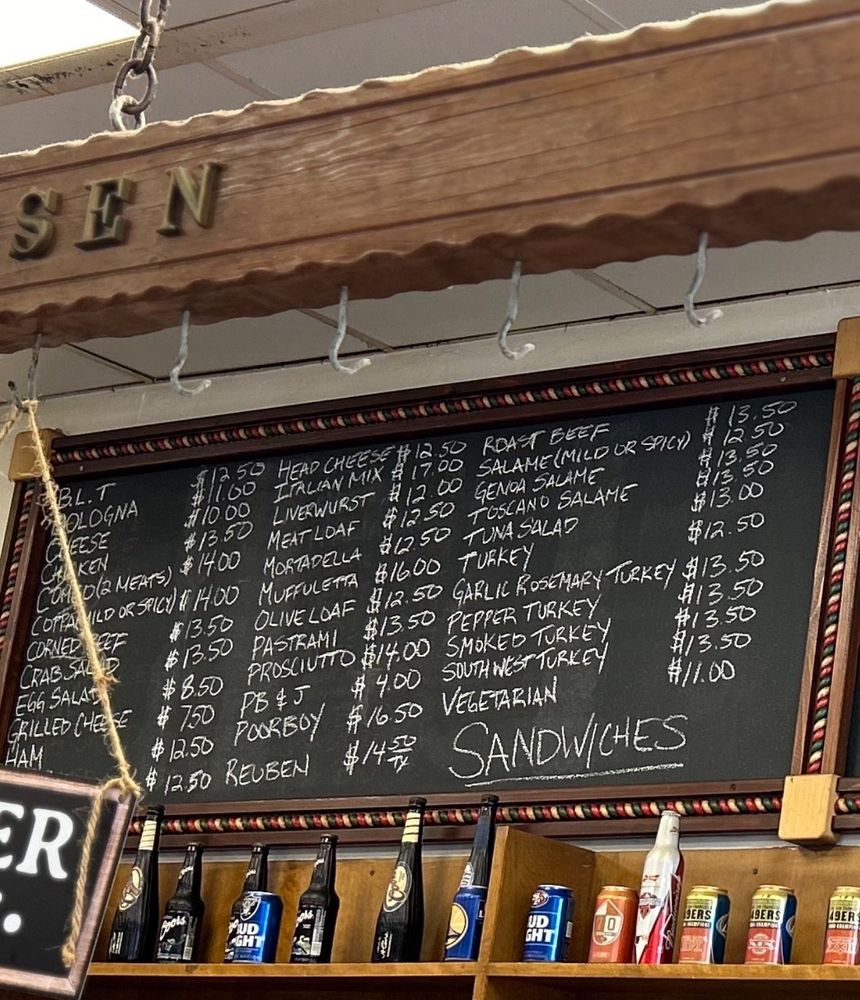 SEN
B.L.T $12.50
BOLOGNA $11.00
CHEESE $10.00
CHICKEN $13.50
COMBO (2 MEATS) $14.00
COPPA (MILD OR SPICY) $14.00
CORNED BEEF $13.50
CRAB SALAD $13.50
EGG SALAD $8.50
GRILLED CHEESE $7.50
HAM $12.50
$12.50
HEAD CHEESE $12.50
ITALIAN MIX $17.00
LIVERWURST $12.00
MEAT LOAF $12.50
MORTADELLA $12.50
MUFFULETTA $16.00
OLIVE LOAF $12.50
PASTRAMI $13.50
PROSCIUTTO $14.00
PB & J $4.00
POORBOY $16.50
REUBEN $14 50/TX
ROAST BEEF $13.50
SALAME (MILD OR SPICY) $12.50
GENOA SALAME $13.50
TOSCANO SALAME $13.50
TUNA SALAD $13.00
TURKEY $12.50
GARLIC ROSEMARY TURKEY $13.50
PEPPER TURKEY $13.50
SMOKED TURKEY $13.50
SOUTHWEST TURKEY $13.50
VEGETARIAN $11.00
SANDWICHES
ER
BUD
LIGHT
BUD
LIGHT
49ERS
49ERS
49ERS